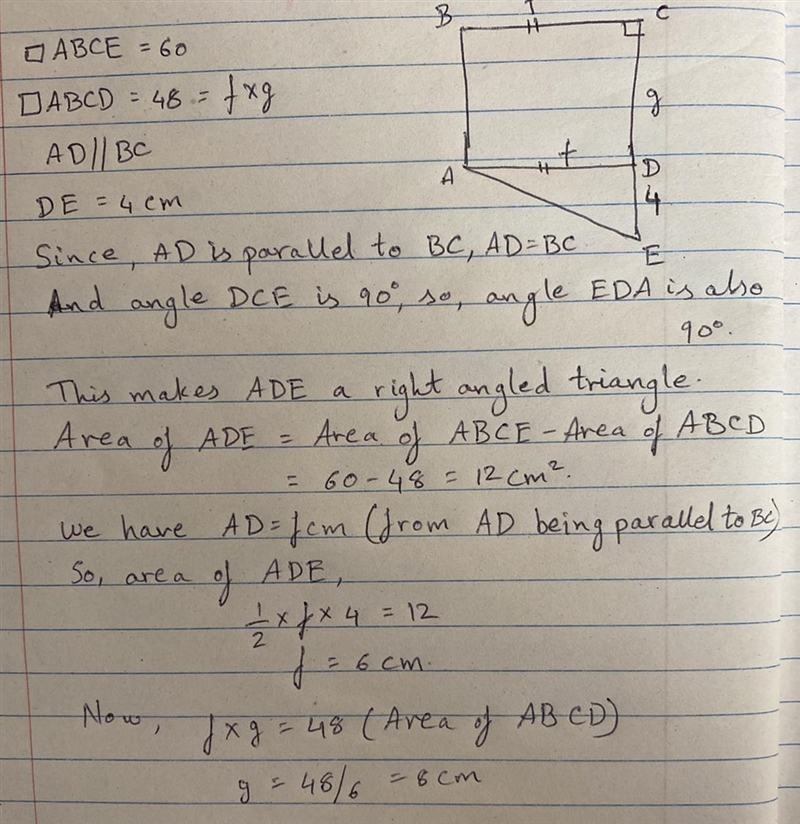 B f C
□ABCE = 60
□ABCD = 48 = f×g
g
AD||BC
A f D
DE = 4 cm
4
E
Since, AD is parallel to BC, AD=BC
And angle DCE is 90°, so, angle EDA is also
90°.
This makes ADE a right angled triangle.
Area of ADE = Area of ABCE - Area of ABCD
= 60-48 = 12cm².
We have AD=fcm (from AD being parallel to BC)
So, area of ADE,
1/2 × f × 4 = 12
f = 6 cm.
Now, f×g = 48 (Area of ABCD)
g = 48/6 = 8cm